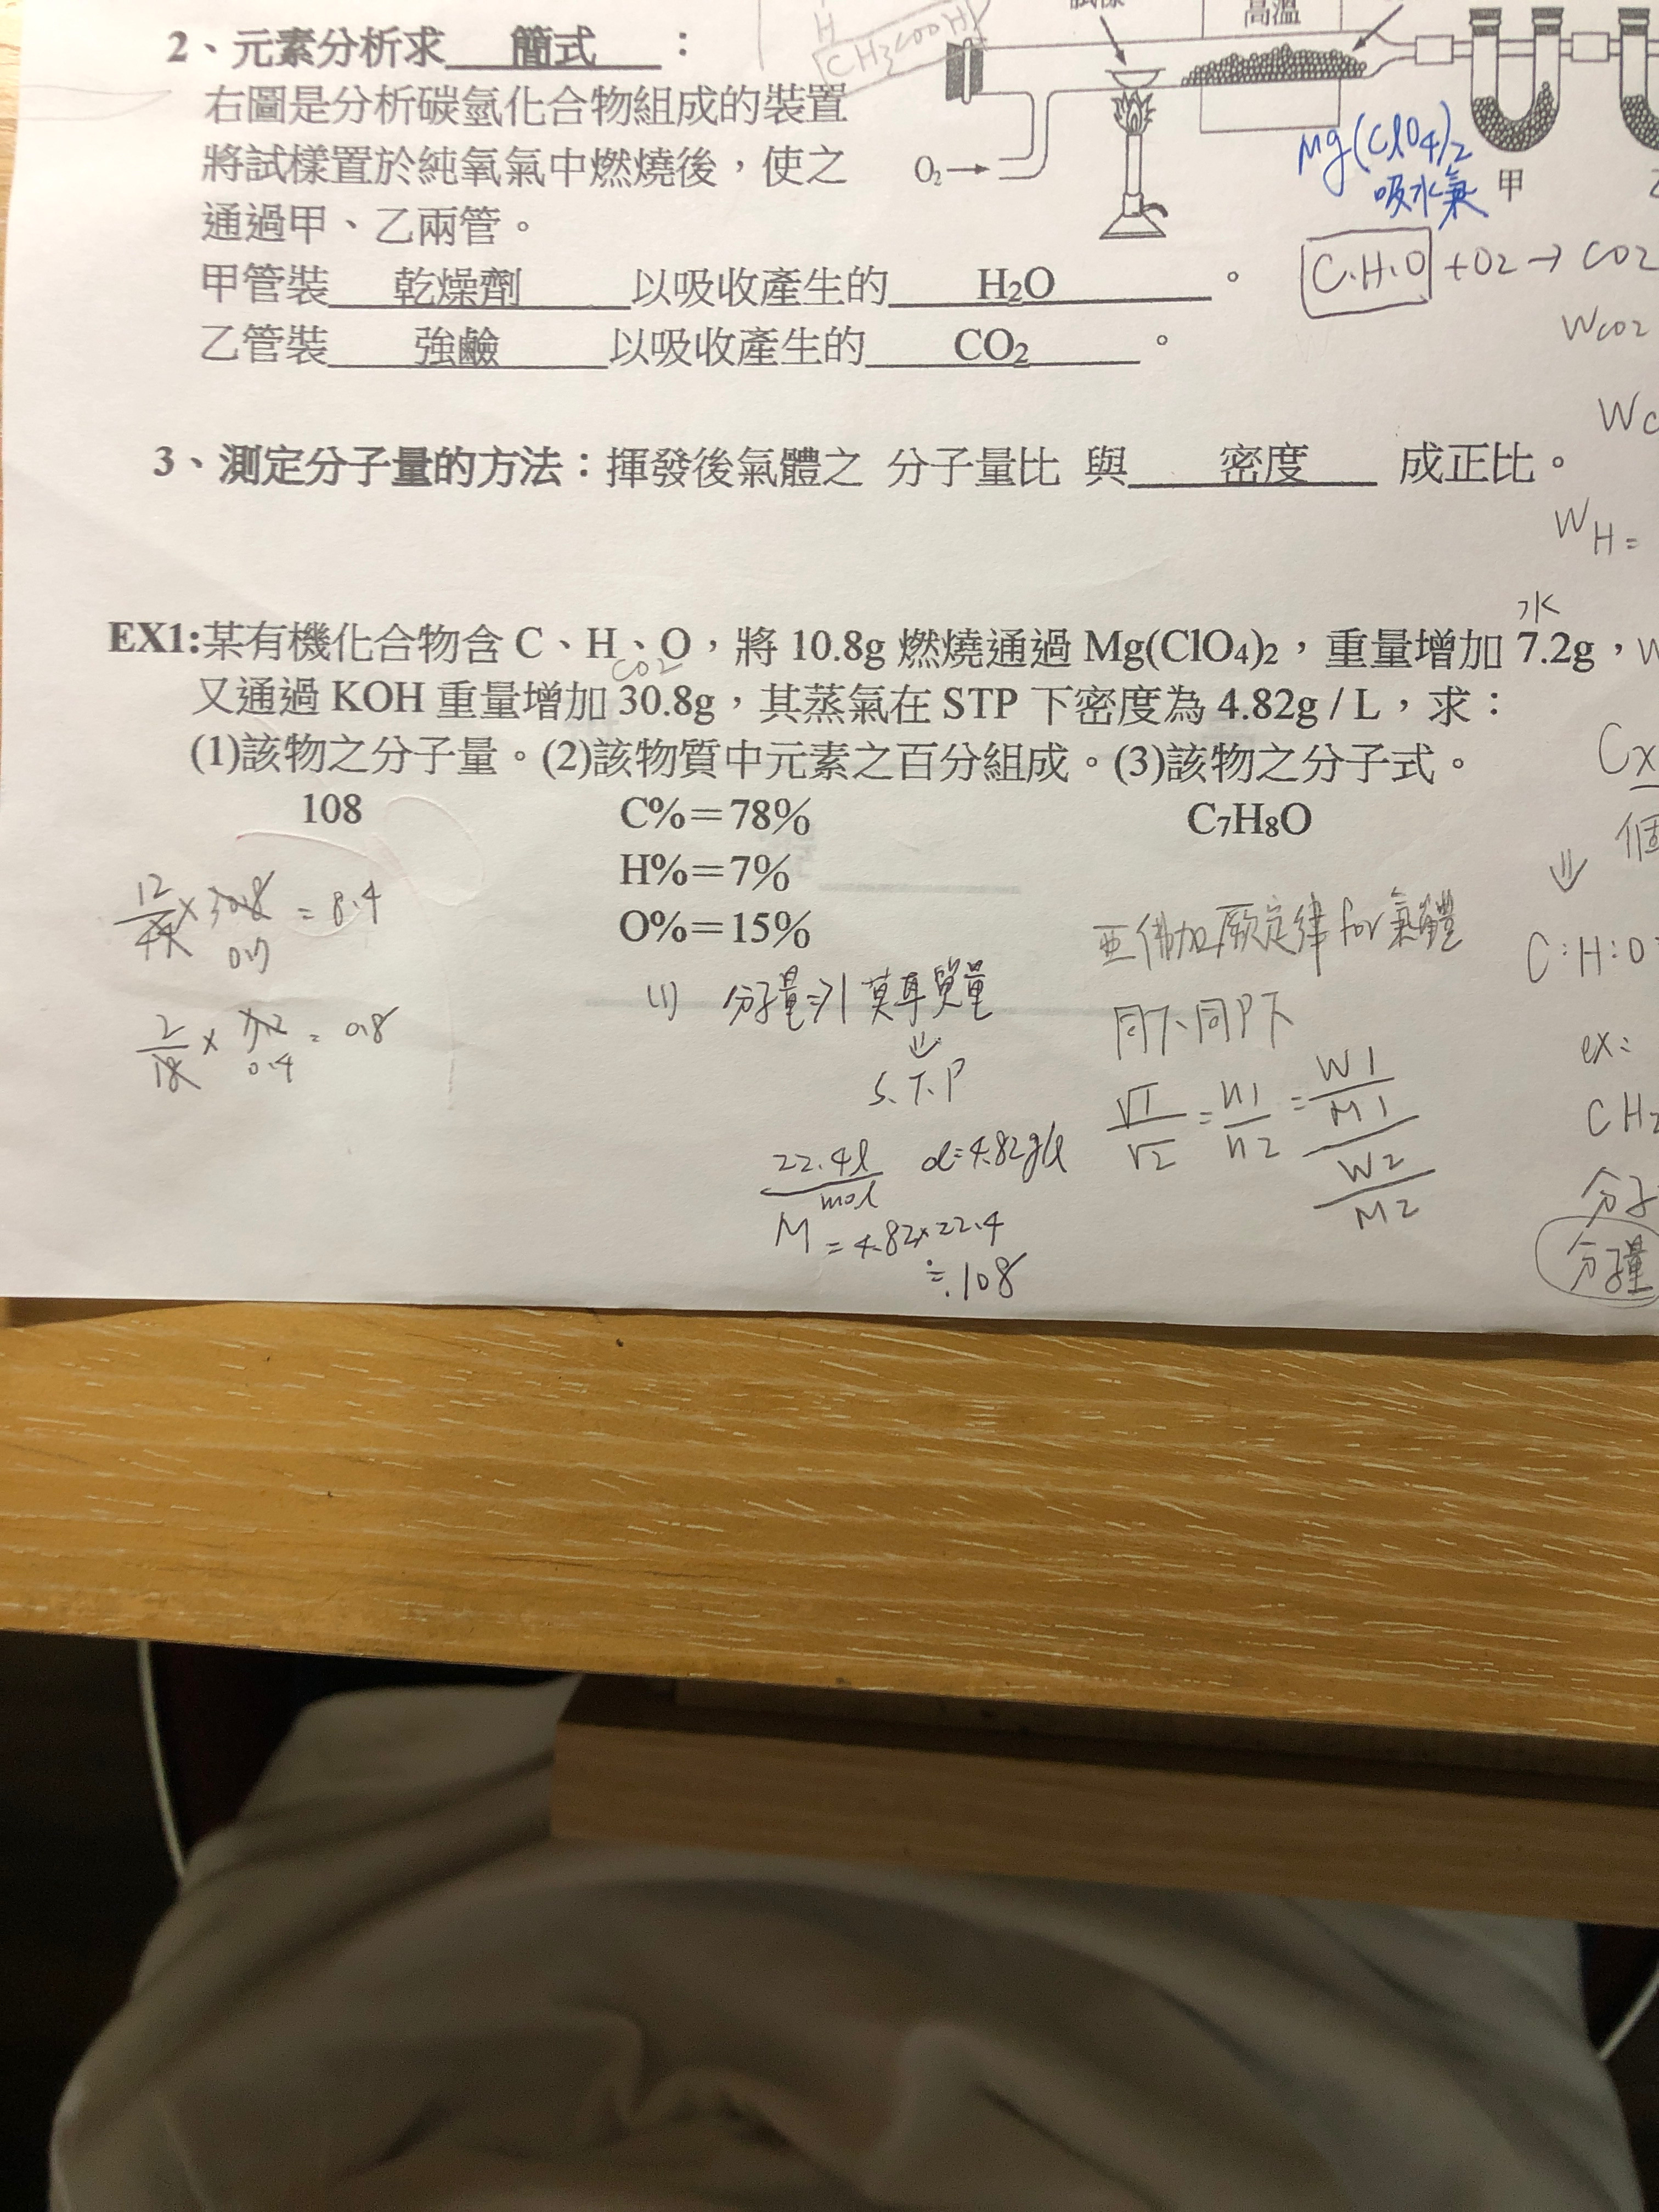 H
CH3COOH
高溫
2、元素分析求 簡式 ：
右圖是分析碳氫化合物組成的裝置
將試樣置於純氧氣中燃燒後，使之
通過甲、乙兩管。
O₂→
Mg(ClO4)2
吸水氣
甲
甲管裝 乾燥劑 以吸收產生的 H₂O 。
乙管裝 強鹼 以吸收產生的 CO₂ 。
C.H.O +O2→ CO2
WCO2
3、測定分子量的方法：揮發後氣體之 分子量比 與 密度 成正比。
WH=
水
EX1:某有機化合物含 C、H、O，將 10.8g 燃燒通過 Mg(ClO₄)₂，重量增加 7.2g，
CO2
又通過 KOH 重量增加 30.8g，其蒸氣在 STP 下密度為 4.82g / L，求：
(1)該物之分子量。(2)該物質中元素之百分組成。(3)該物之分子式。
108
C%＝78%
H%＝7%
O%＝15%
C₇H₈O
Cx
個
⇓
C:H:O
ex:
CH2
分子
分子量
12/44 × 30.8 = 8.4
0.7
2/18 × 7.2 = 0.8
0.4
(1) 分子量⇒莫耳質量
⇓
S.T.P
22.4l/mol d=4.82g/l
M = 4.82×22.4
≒108
亞佛加厥定律for氣體
同T、同P下
V1/V2 = n1/n2 = W1/M1 / W2/M2